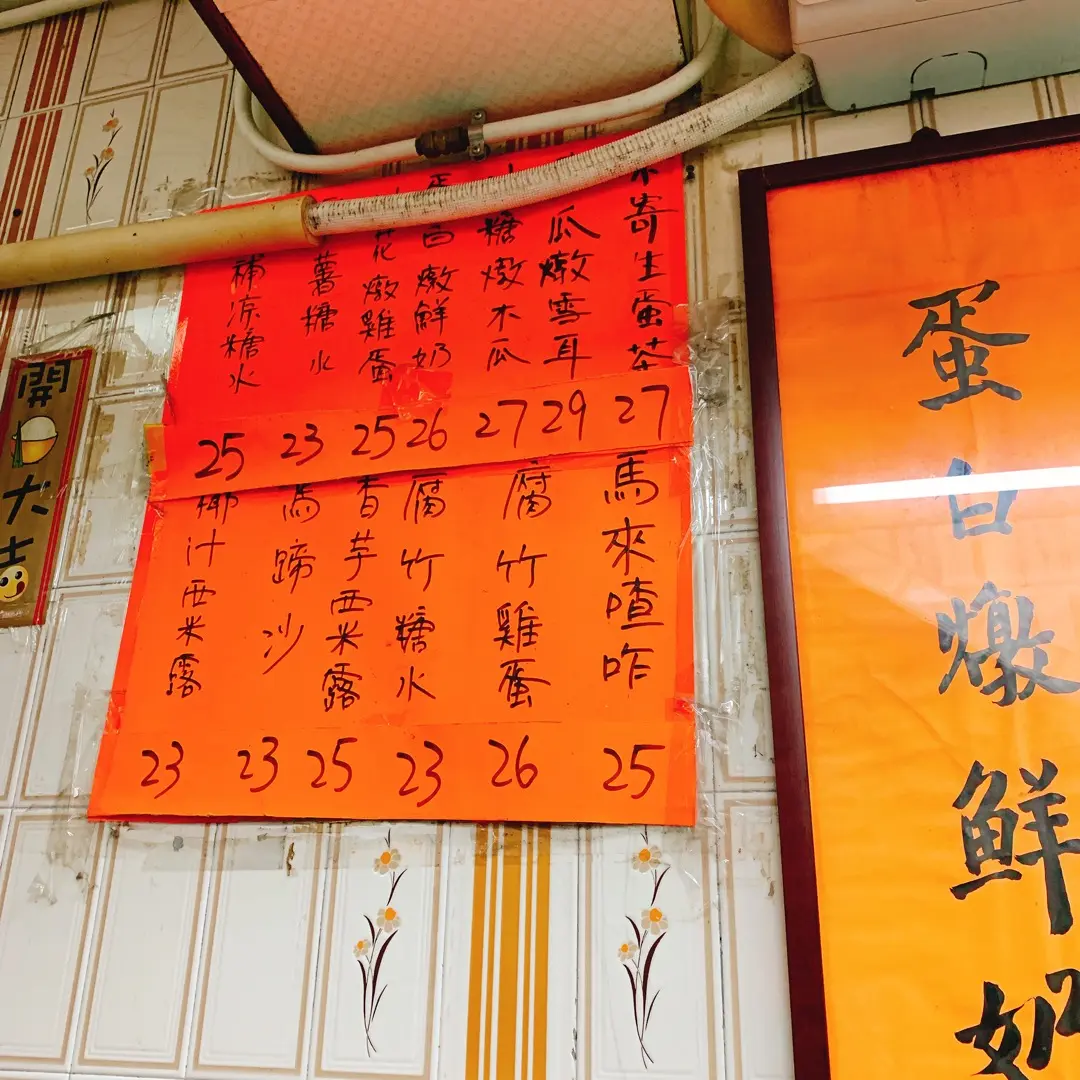 蛋白燉鮮奶
寄生蛋茶 27
瓜燉雪耳 29
糖燉木瓜 27
蛋白燉鮮奶 26
花燉雞蛋 25
薯糖水 23
補凉糖水 25
馬來喳咋 25
腐竹雞蛋 26
腐竹糖水 23
香芋西米露 25
馬蹄沙 23
椰汁西米露 23
開大吉